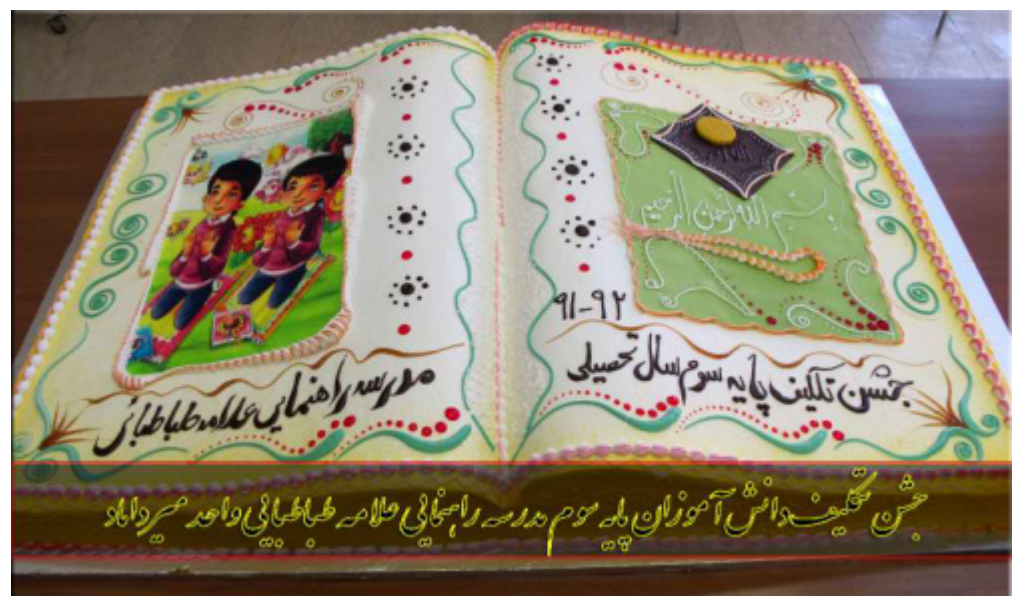 بسم الله الرحمن الرحیم
جشن تکلیف پایه سوم سال تحصیلی
۹۱-۹۲
مدرسه راهنمایی علامه طباطبائی
جشن تکلیف دانش آموزان پایه سوم مدرسه راهنمایی علامه طباطبایی واحد میرداماد